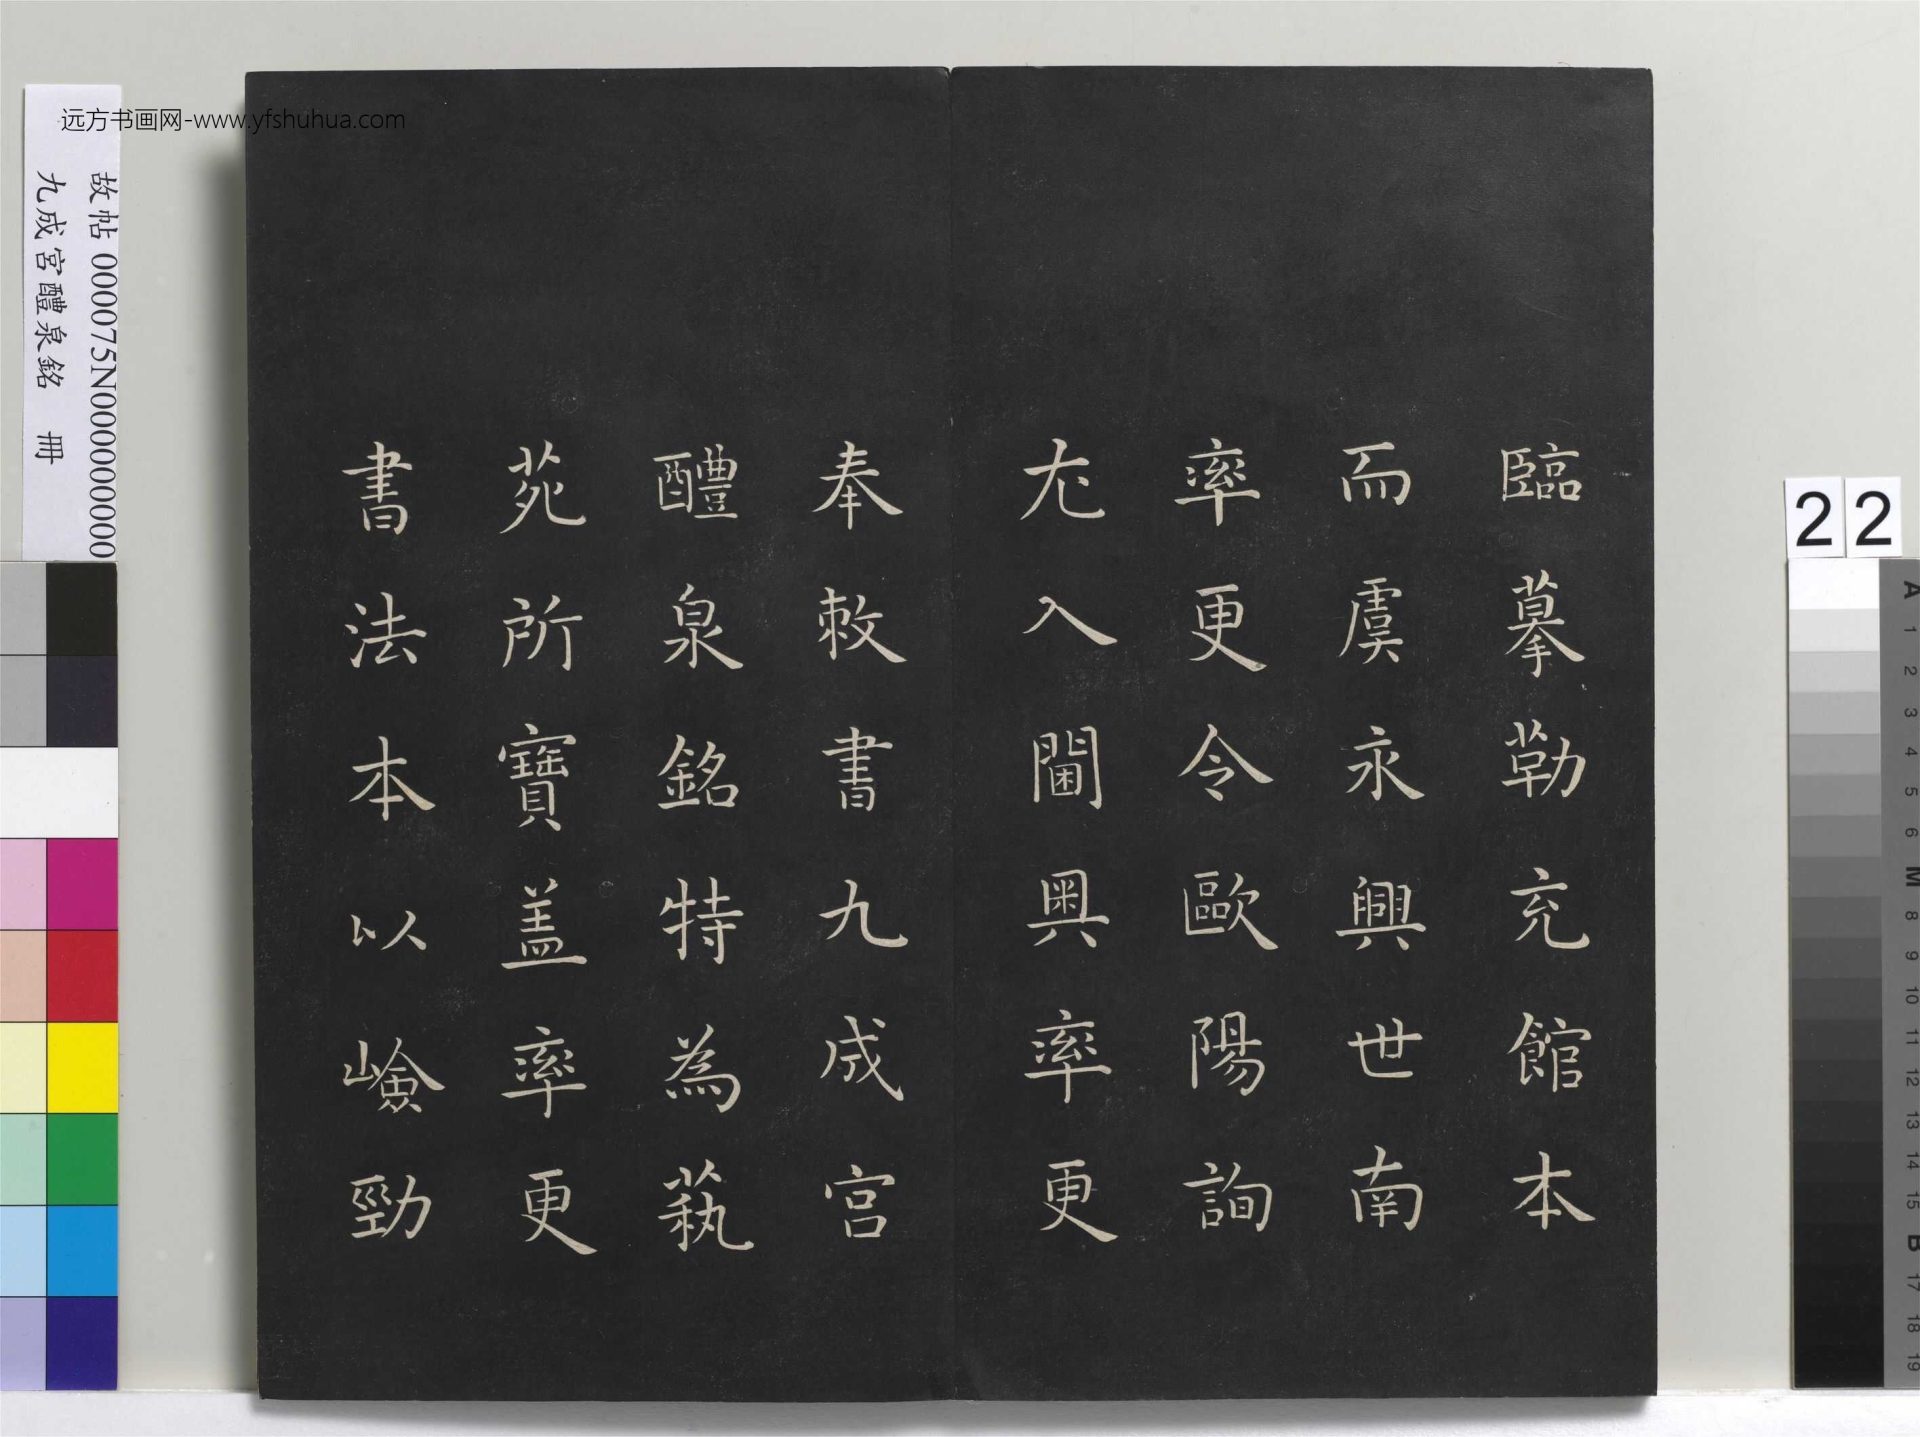 臨摹勒充館本
而虞永興世南
率更令歐陽詢
尤入閫奥率更
奉敕書九成宫
醴泉銘特為蓺
苑所寶盖率更
書法本以嶮勁
远方书画网-www.yfshuhua.com
故帖 000075N000000000
九成宮醴泉銘 冊
22
A
1
2
3
4
5
6
M
8
9
10
11
12
13
14
15
B
17
18
19